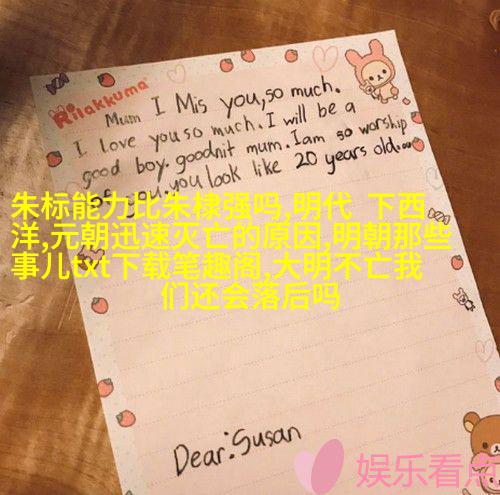 Rilakkuma
Mum I Mis you,so much.
I love you so much. I will be a
good boy. goodnit mum. Iam so worship
of you. you look like 20 years old...
朱标能力比朱棣强吗,明代 下西
洋,元朝迅速灭亡的原因,明朝那些
事儿txt下载笔趣阁,大明不亡我
们还会落后吗
Dear:Susan
娱乐看点